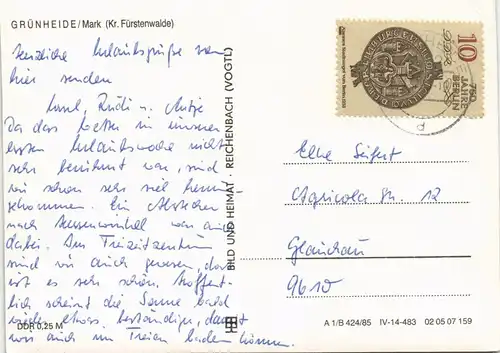 GRÜNHEIDE/Mark (Kr. Fürstenwalde)
Herzliche Urlaubsgrüße von
hier senden
Rudi u. Antje
Da das Wetter in unserer
ersten Urlaubswoche nicht
sehr berühmt war, sind
wir schon sehr viel herum-
gekommen. Ein Abstecher
nach war auch
dabei. Am Freizeitzentrum
sind wir auch gewesen, dort
ist es sehr schön. Hoffent-
lich scheint die Sonne bald
wieder etwas beständiger, damit
wir auch im Freien baden können.
DDR 0,25 M
BILD UND HEIMAT · REICHENBACH (VOGTL)
10
750
JAHRE
BERLIN
DDR
Elke Seifert
Agricola Str. 12
Glauchau
9610
A 1/B 424/85 IV-14-483 02 05 07 159